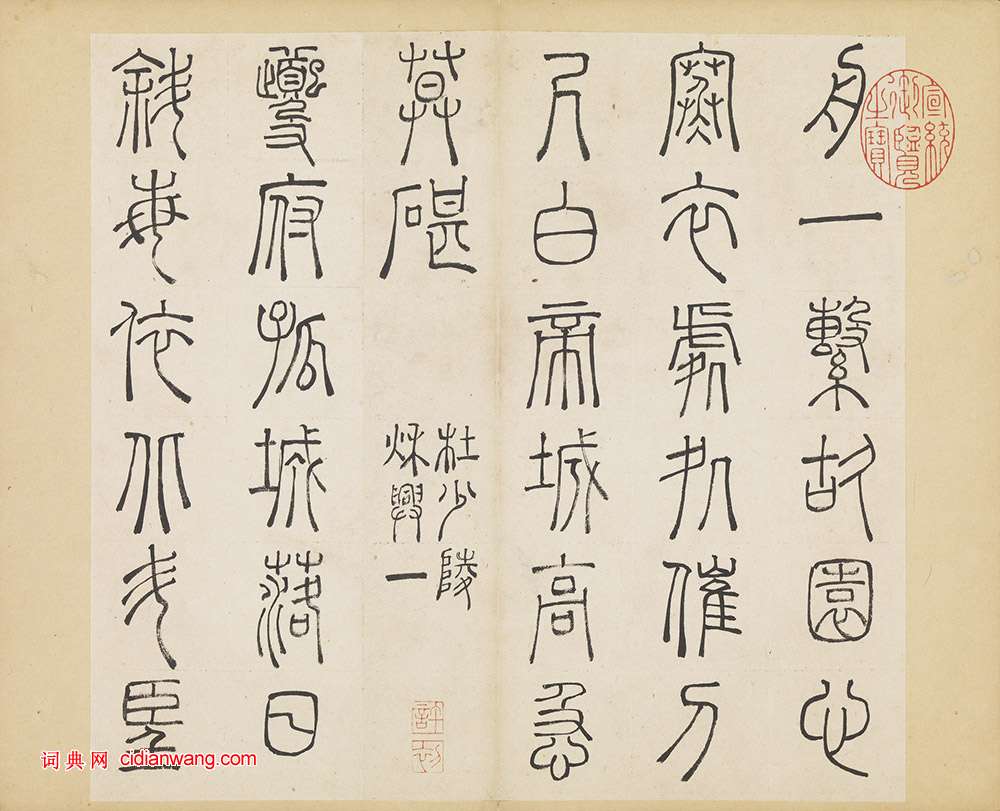 宣統御覽之寶
舟一繫故園心
寒衣處処催刀
尺白帝城高急
莫碪
杜少陵
秌興一
許初
夔府孤城落日
斜每依北斗望
词典网 cidianwang.com